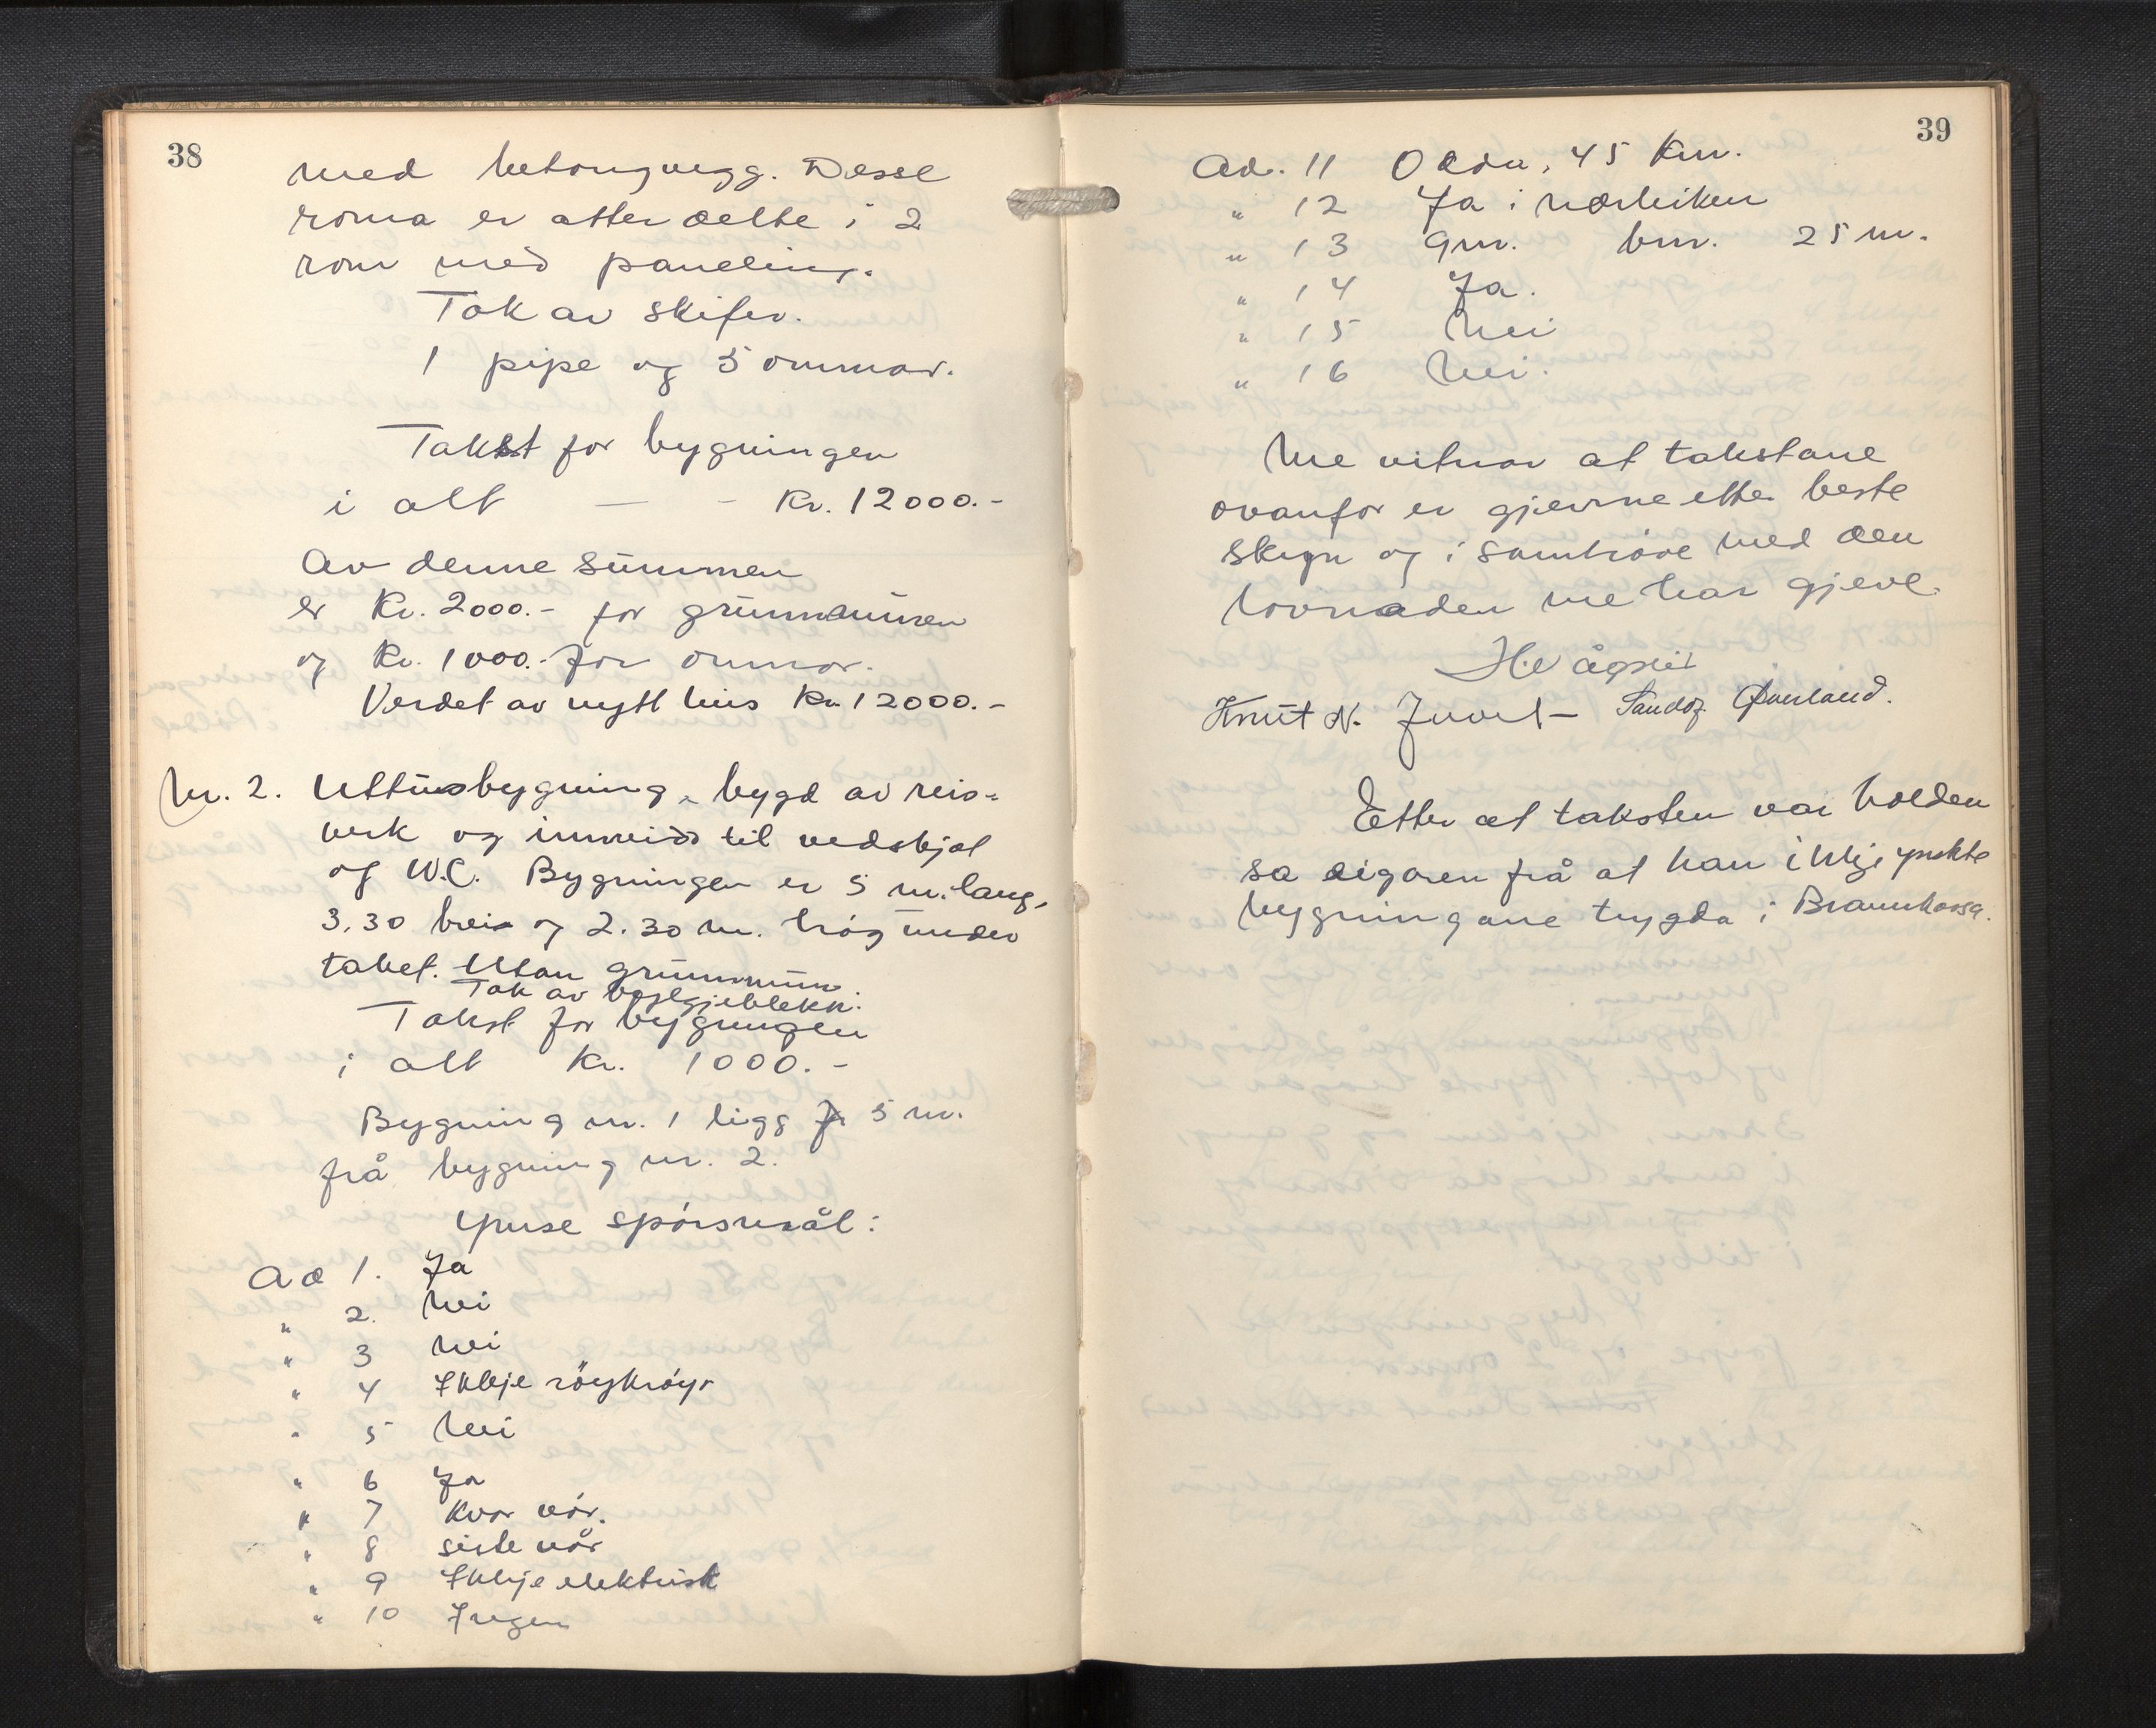 38
med betongvegg. Desse
roma er atter delte i 2
rom med paneling.
Tak av skifer.
1 pipe og 5 ommar.
Takst for bygningen
i alt — - Kr. 12000.-
Av denne summen
er Kr. 2000.- for grunnmuren
og Kr. 1000.- for ommar.
Verdet av nytt hus Kr. 12000.-
Nr. 2. Uthusbygning, bygd av reis-
verk og innreidd til vedskjøl
og W.C. Bygningen er 5 m. lang,
3,30 brei og 2.30 m. høg under
taket. Utan grunnmur.
Tak av bylgjeblekk.
Takst for bygningen
i alt Kr. 1000.-
Bygning nr. 1 ligg 5 m.
frå bygning nr. 2.
Ymse spørsmål:
Ad 1. Ja
" 2. Nei
" 3 Nei
" 4 Ikkje røykrøyr
" 5 Nei
" 6 Ja
" 7 Kvar vår.
" 8 siste vår
" 9 Ikkje elektrisk
" 10 Ingen
39
Ad. 11 Odda, 45 km.
" 12 Ja i nærleiken
" 13 9 m. 6 m. 25 m.
" 14 Ja.
" 15 Nei
" 16 Nei.
Me vitnar at takstane
ovanfor er gjevne etter beste
skyn og i samhøve med den
lovnaden me har gjeve.
H. Vågslid
Knut N. Juvet - Sandof Øverland.
Etter at taksten var halden
sa eigaren frå at han ikkje ynskte
bygningane trygda i Brannkassa.